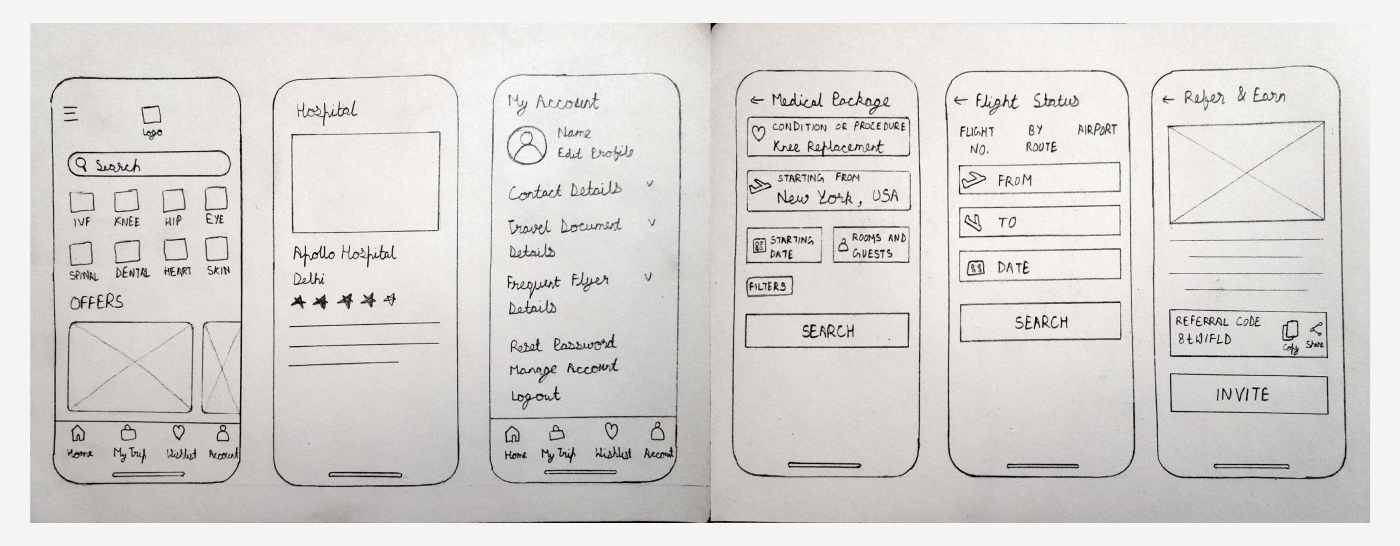 Logo
Search
IVF KNEE HIP EYE
SPINAL DENTAL HEART SKIN
OFFERS
Home My Trip Wishlist Account
Hospital
Apollo Hospital
Delhi
My Account
Name
Edit Profile
Contact Details
Travel Document
Details
Frequent Flyer
Details
Reset Password
Manage Account
Logout
Home My Trip Wishlist Account
← Medical Package
CONDITION OR PROCEDURE
Knee Replacement
STARTING FROM
New York, USA
STARTING
DATE
ROOMS AND
GUESTS
FILTERS
SEARCH
← Flight Status
FLIGHT
NO.
BY
ROUTE
AIRPORT
FROM
TO
DATE
SEARCH
← Refer & Earn
REFERRAL CODE
Copy Share
INVITE